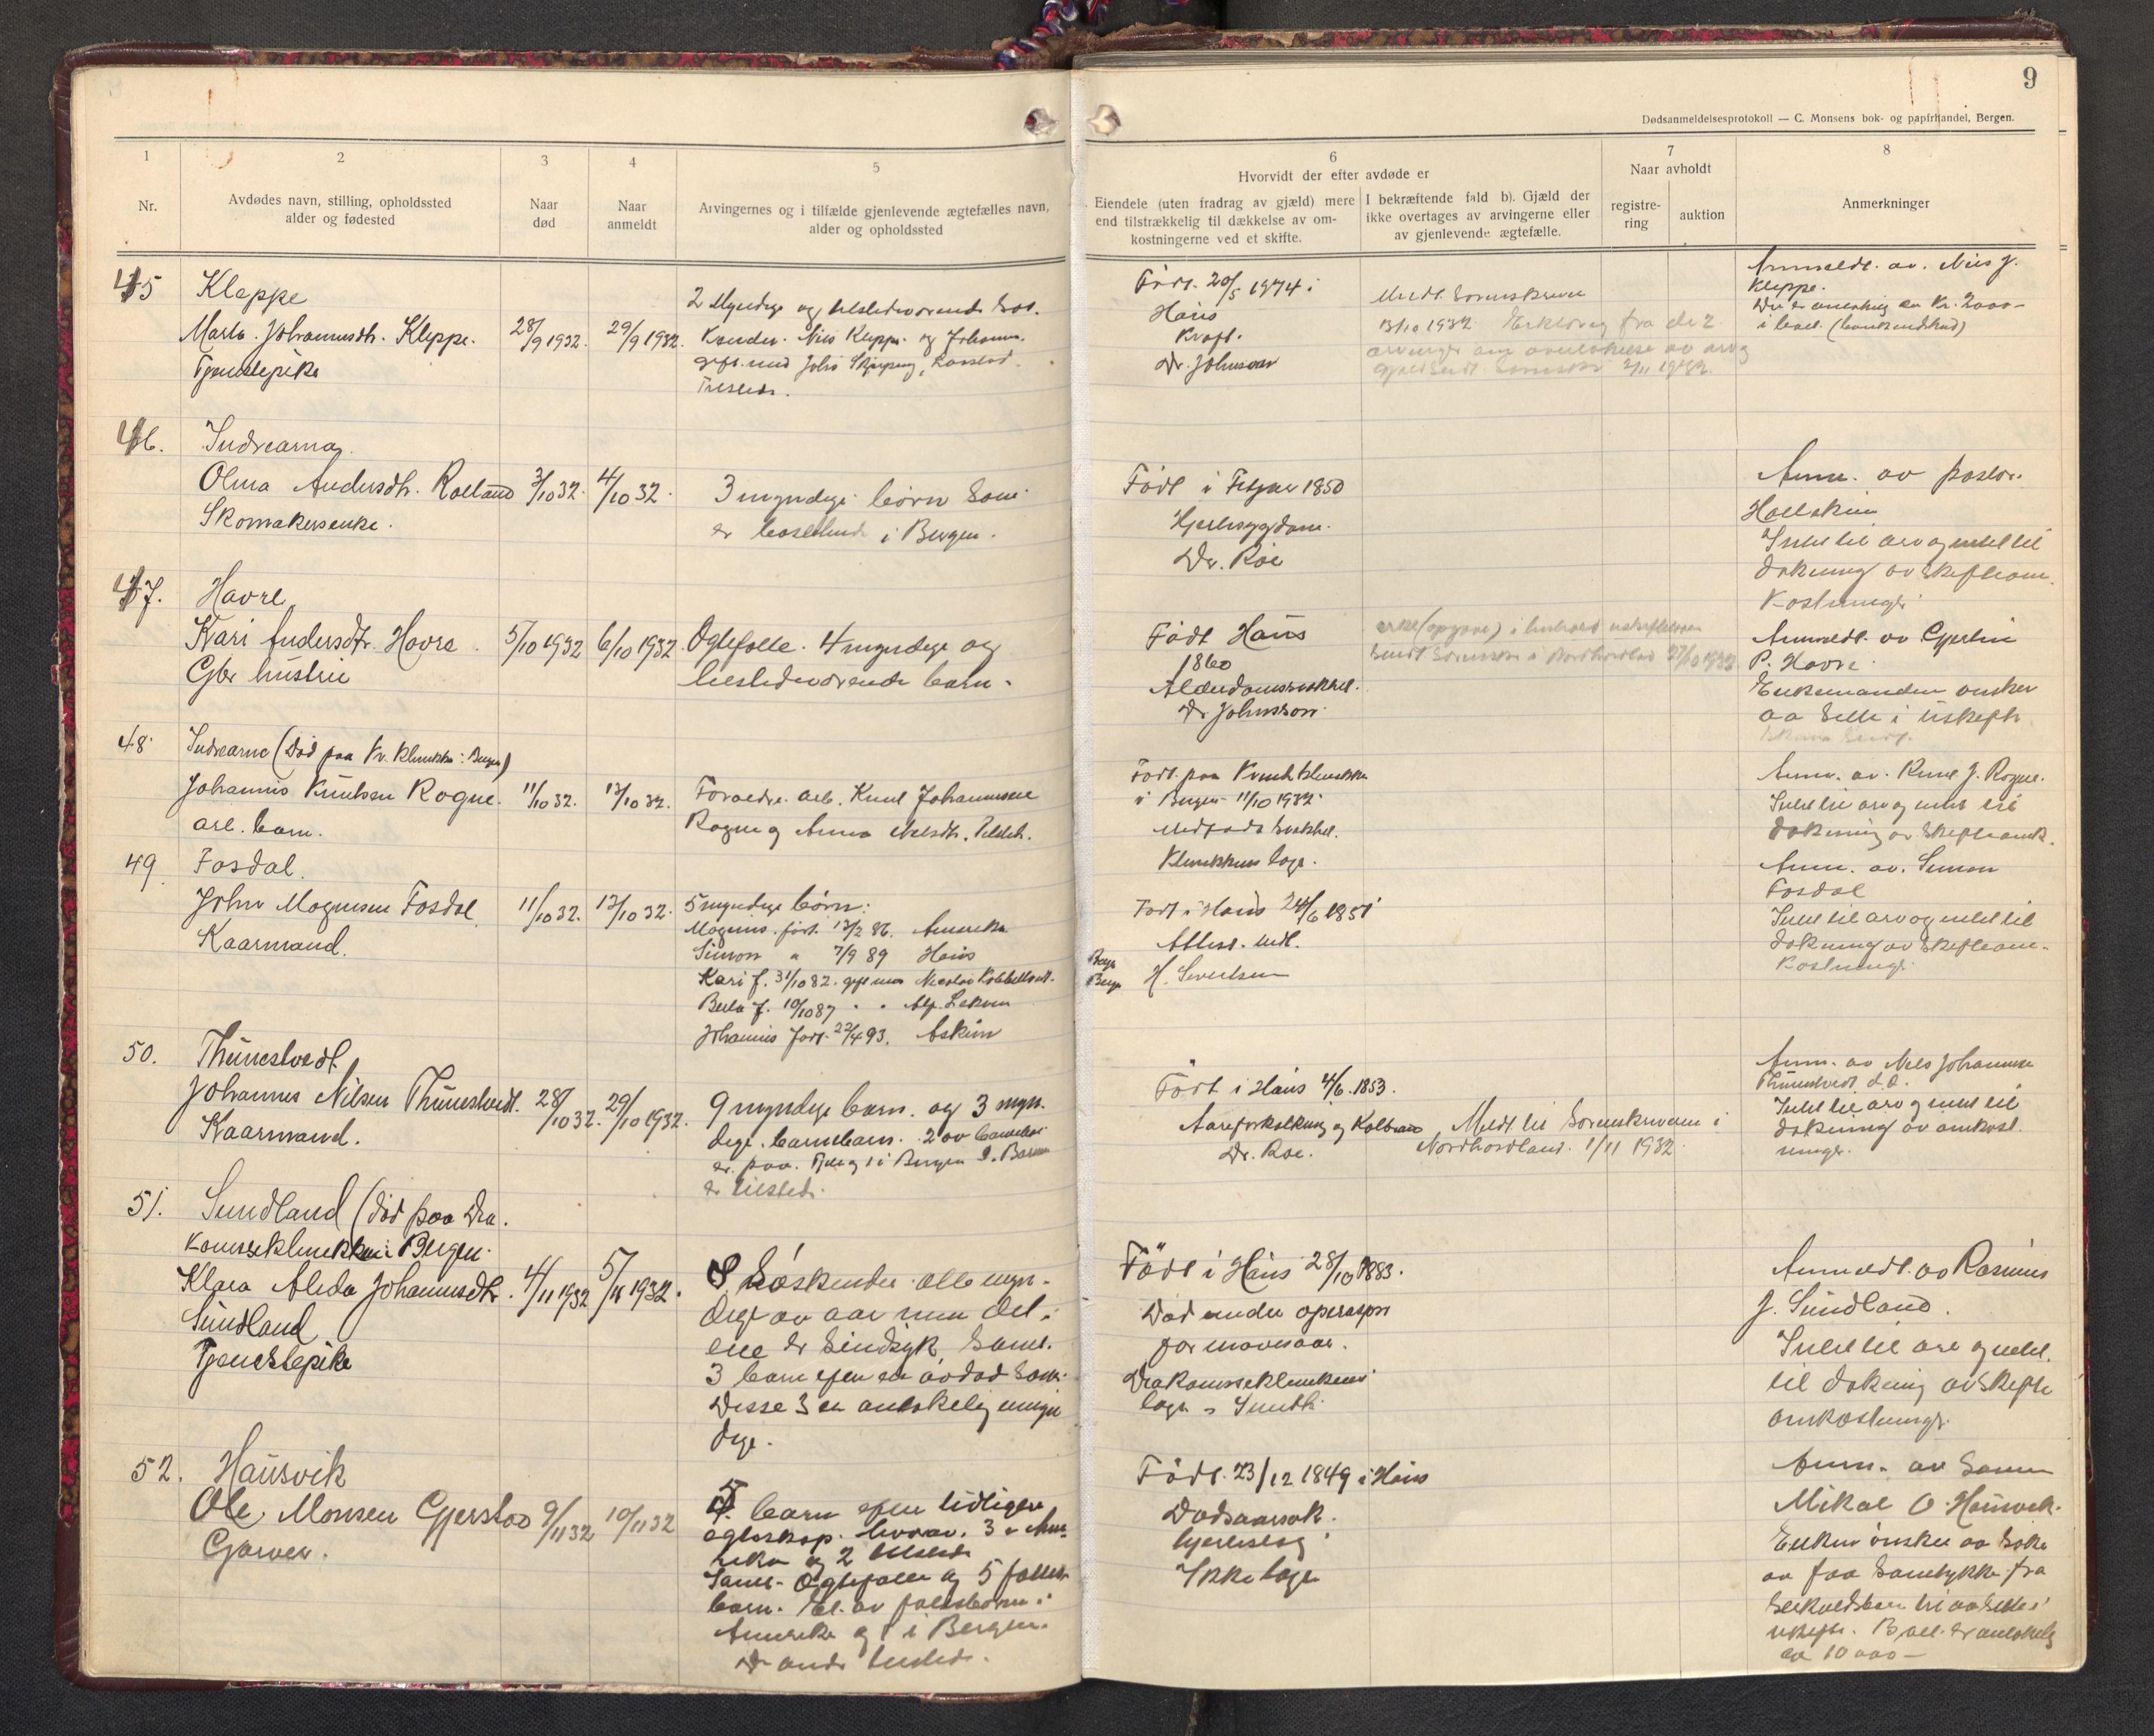 9
Dødsanmeldelsesprotokoll — C. Monsens bok- og papirhandel, Bergen.
1
Nr.
2
Avdødes navn, stilling, opholdssted
alder og fødested
3
Naar
død
4
Naar
anmeldt
5
Arvingernes og i tilfælde gjenlevende ægtefælles navn,
alder og opholdssted
6
Hvorvidt der efter avdøde er
Eiendele (uten fradrag av gjæld) mere
end tilstrækkelig til dækkelse av om-
kostningerne ved et skifte.
I bekræftende fald b). Gjæld der
ikke overtages av arvingerne eller
av gjenlevende ægtefælle.
7
Naar avholdt
registre-
ring
auktion
8
Anmerkninger
45
Kleppe
Marta Johannesdtr. Kleppe.
Tjenstepike
28/9 1932.
29/9 1932.
2 Myndige og tilstedeværende Søs-
kender. Nils Kleppe og Johanna
gift med
Tilsteds.
Født. 20/5 1874 i
Haus
Kræft.
Dr. Johnsson
Meldt Sorenskriver
13/10 1932. Erklæring fra de 2
arvinger om overtakelse av arv og
gjæld sendt 2/11 1932.
Anmeldt. av. Nils J.
Kleppe.
Der er antakelig ca Kr. 2000-
i boet. (bankindskud)
46.
Indrearna.
Olina Andersdtr. Rolland
Skomakerenke.
3/10 32.
4/10 32.
3 myndige børn som
er bosittende i Bergen.
Født i Februar 1850
Hjertesygdom.
Dr. Roe
Anm. av pastor
Intet til arv og intet til
dækning av skifteom-
kostninger.
47.
Havre
Kari Andersdtr. Havre.
Gbr hustru
5/10 1932
6/10 1932.
Ægtefælle. 4 myndige og
tilstedeværende barn.
Født Haus
1860
Alderdomssvakhet.
Dr. Johnsson.
27/10 1932
Anmeldt. av Gjertin
P. Havre.
Enkemanden ønsker
aa sitte i uskifte
48
Indrearne (Død paa Kv. Klinikken i Bergen)
Johannes Knutsen Rogne.
arb. barn.
11/10 32.
13/10 32.
Foreldre. arb. Knut Johannessen
Rogne og Anna Nilsdtr.
Født. paa Kvindeklinikken
i Bergen 11/10 1932.
Medfødt svakhet.
Klinikkens læge.
Anm. av. Knut J. Rogne.
Intet til arv og intet til
dækning av skifteomk.
49.
Fosdal.
John Magnusen Fosdal.
Kaarmand.
11/10 32.
13/10 32.
5 myndige børn:
Magnus. født. 13/2 86. Amerika
Simon " 7/9 89 Haus
Kari f. 31/10 82. gift med Nicolai
Berta f. 10/10 87 " "
Johannes født 22/4 93. Askim
Født i Haus 24/6 1851
Attest. vedl.
H. Sivertsen
Anm. av. Simon
Fosdal
Intet til arv og intet til
dækning av skifteom-
kostninger.
50.
Thunestvedt.
Johannes Nilsen Thunestvedt.
Kaarmand.
28/10 32.
29/10 1932.
9 myndige barn. og 3 myn-
dige. barnebarn. 2 av barnebarn
er. paa. og 1 i Bergen 9. Barn
er tilsteds.
Født i Haus 4/6. 1853.
Aareforkalkning og Koldbran
Dr. Roe.
Meldt til Sorenskriveren i
Nordhordland. 1/11 1932
Anm. av Nels Johannesen
Thunestvedt d.e.
Intet til arv og intet til
dækning av omkost-
ninger.
51.
Sundland (død paa Dia-
konisseklinikken i Bergen.
Klara Alida Johannesdtr.
Sundland
Tjenestepike
4/11 1932
5/11 1932.
8 Søskender alle myn-
dige av aar men det
ene er sindsyk samt.
3 barn efter en avdød søst.
Disse 3 er antakelig myn-
dige.
Født i Haus 28/10 1883.
Død under operasjon
for mavesaar.
Diakonisseklinikkens
læge
Anmeldt. av Rasmus
J. Sundland.
Intet til arv og intet.
til dækning av skifte
omkostninger.
52.
Hausvik
Ole. Monsen Gjerstad
Garver.
9/11 32
10/11 32
5 barn efter tidligere
egteskap. hvorav. 3 i Ame-
rika og 2 tilsteds
samt- Ægtefælle og 5 felles-
barn. Et. av fellesbarn i
Amerika og 1 i Bergen.
De andre tilsteds.
Født. 23/12 1849 i Haus
Dødsaarsak.
hjerteslag
Ikke læge
Anm. av Sønn
Mikal O. Hausvik.
Enken ønsker aa søke
aa faa samtykke fra
særkuldsbarn til aa sitte i
uskifte. Boet er antakelig
ca 10 000 —